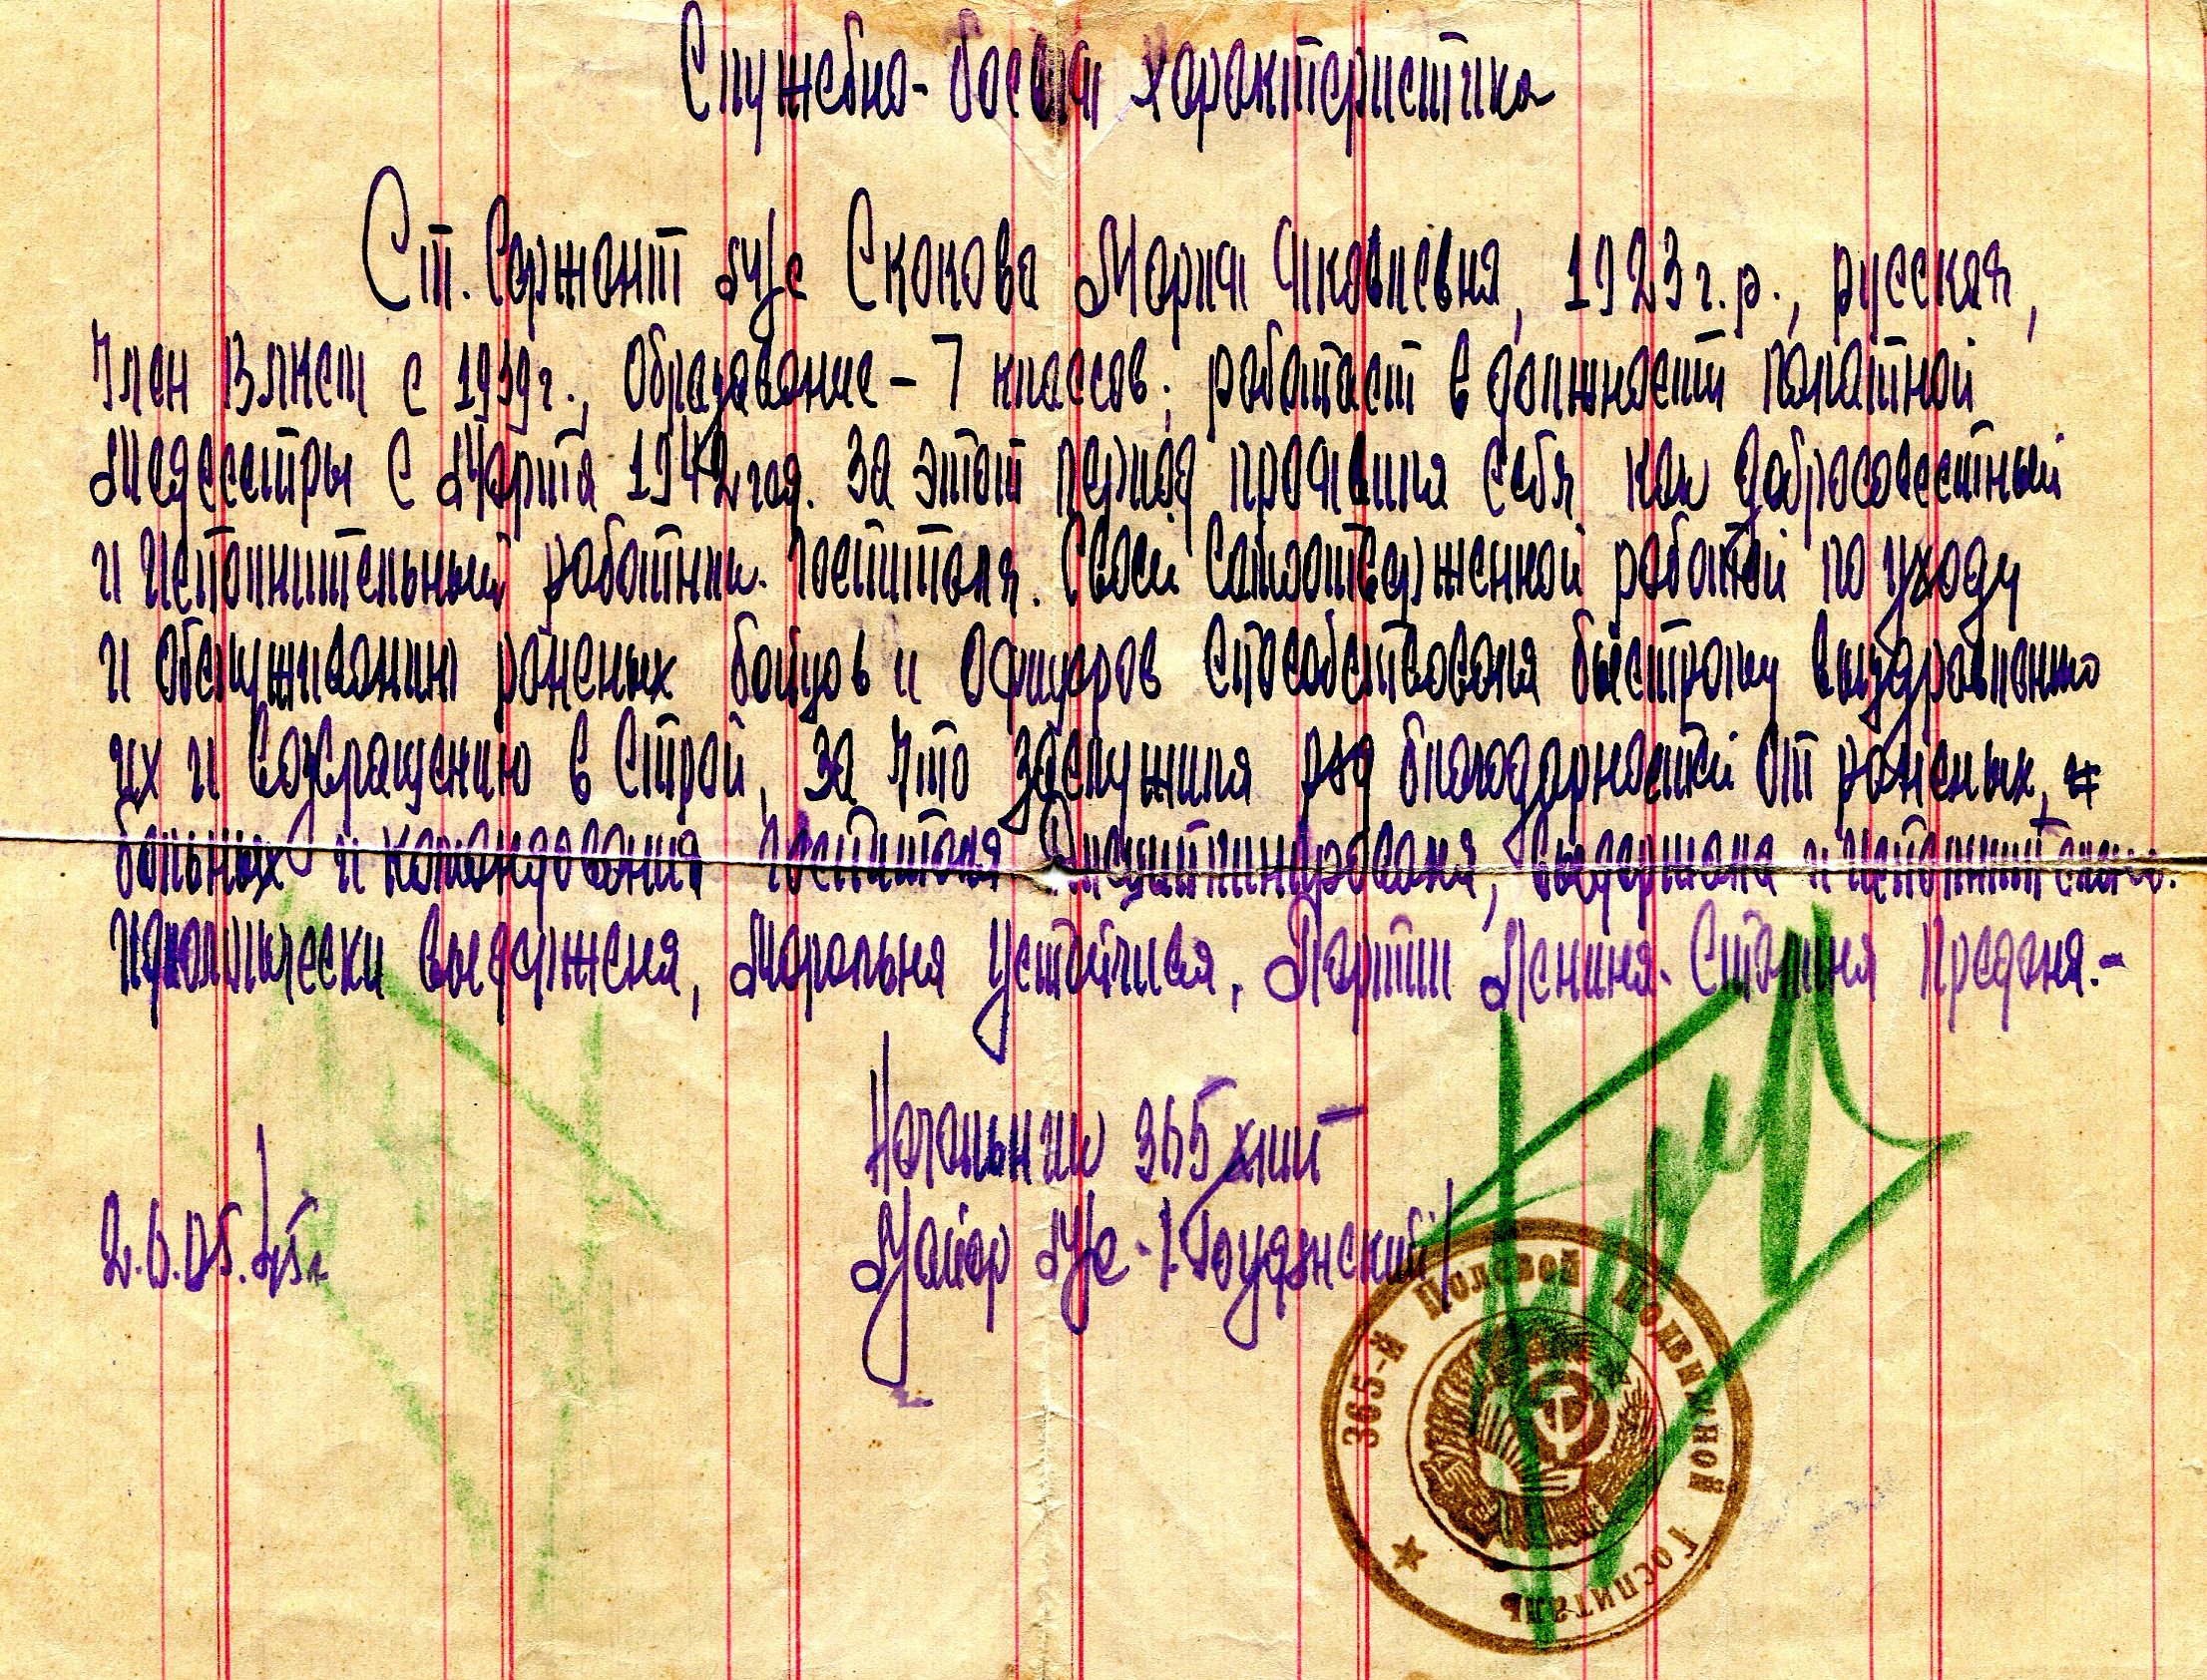 Служебно-боевая характеристика
Ст. Сержант м/с Скокова Мария Яковлевна, 1923 г.р., русская,
Член ВЛКСМ с 1939г., Образование - 7 классов; работает в должности палатной
Медсестры с Марта 1942 года. За этот период проявила себя как добросовестный
и исполнительный работник госпиталя. Своей самоотверженной работой по уходу
и обслуживанию раненых бойцов и офицеров способствовала быстрому выздоровлению
их и возвращению в строй, за что заслужила ряд благодарностей от раненых,
больных и командования госпиталя. Дисциплинирована, выдержана и исполнительна.
Идеологически выдержена, Морально устойчива, Партии Ленина-Сталина предана.-
Начальник 365 хппг
Майор м/с
45г
365-й Полевой Подвижной Госпиталь